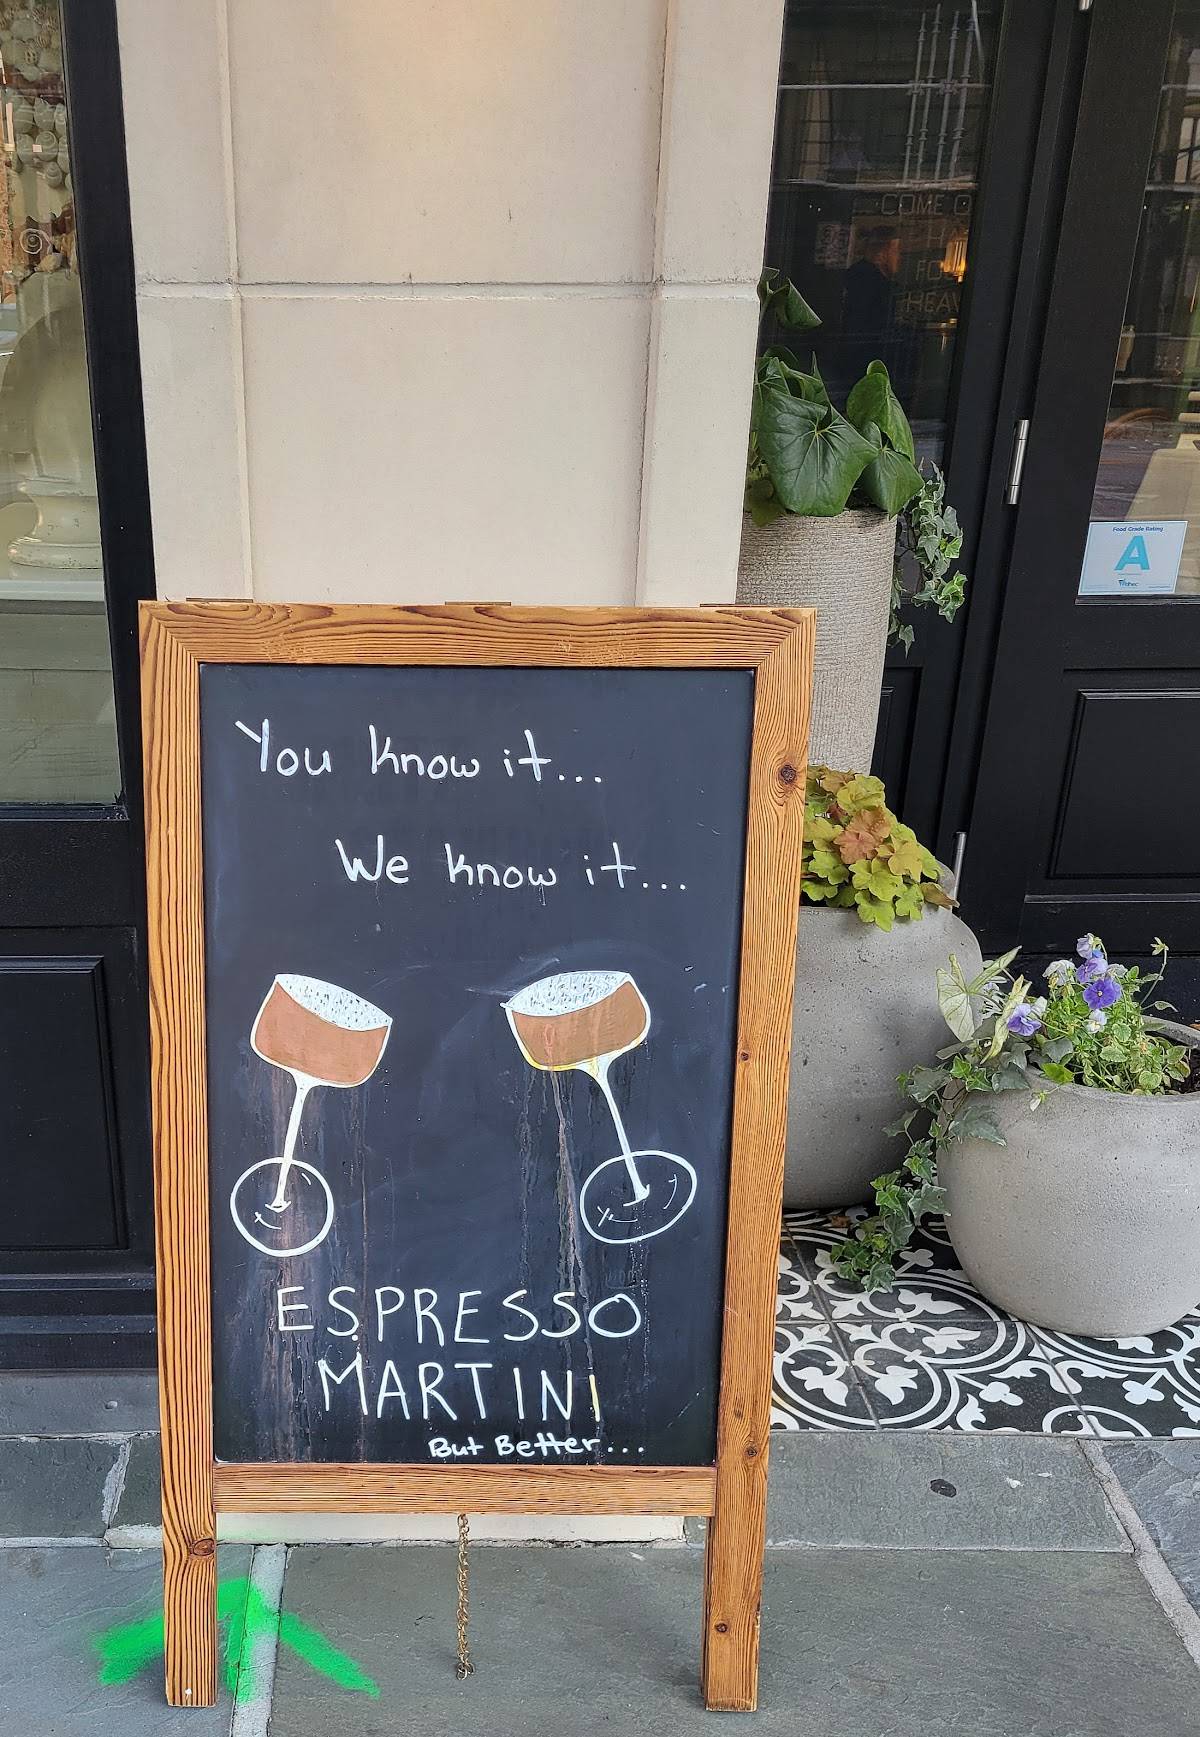 COME O
FO
HEAV
Food Grade Rating
A
You know it...
We know it...
ESPRESSO
MARTINI
But Better...